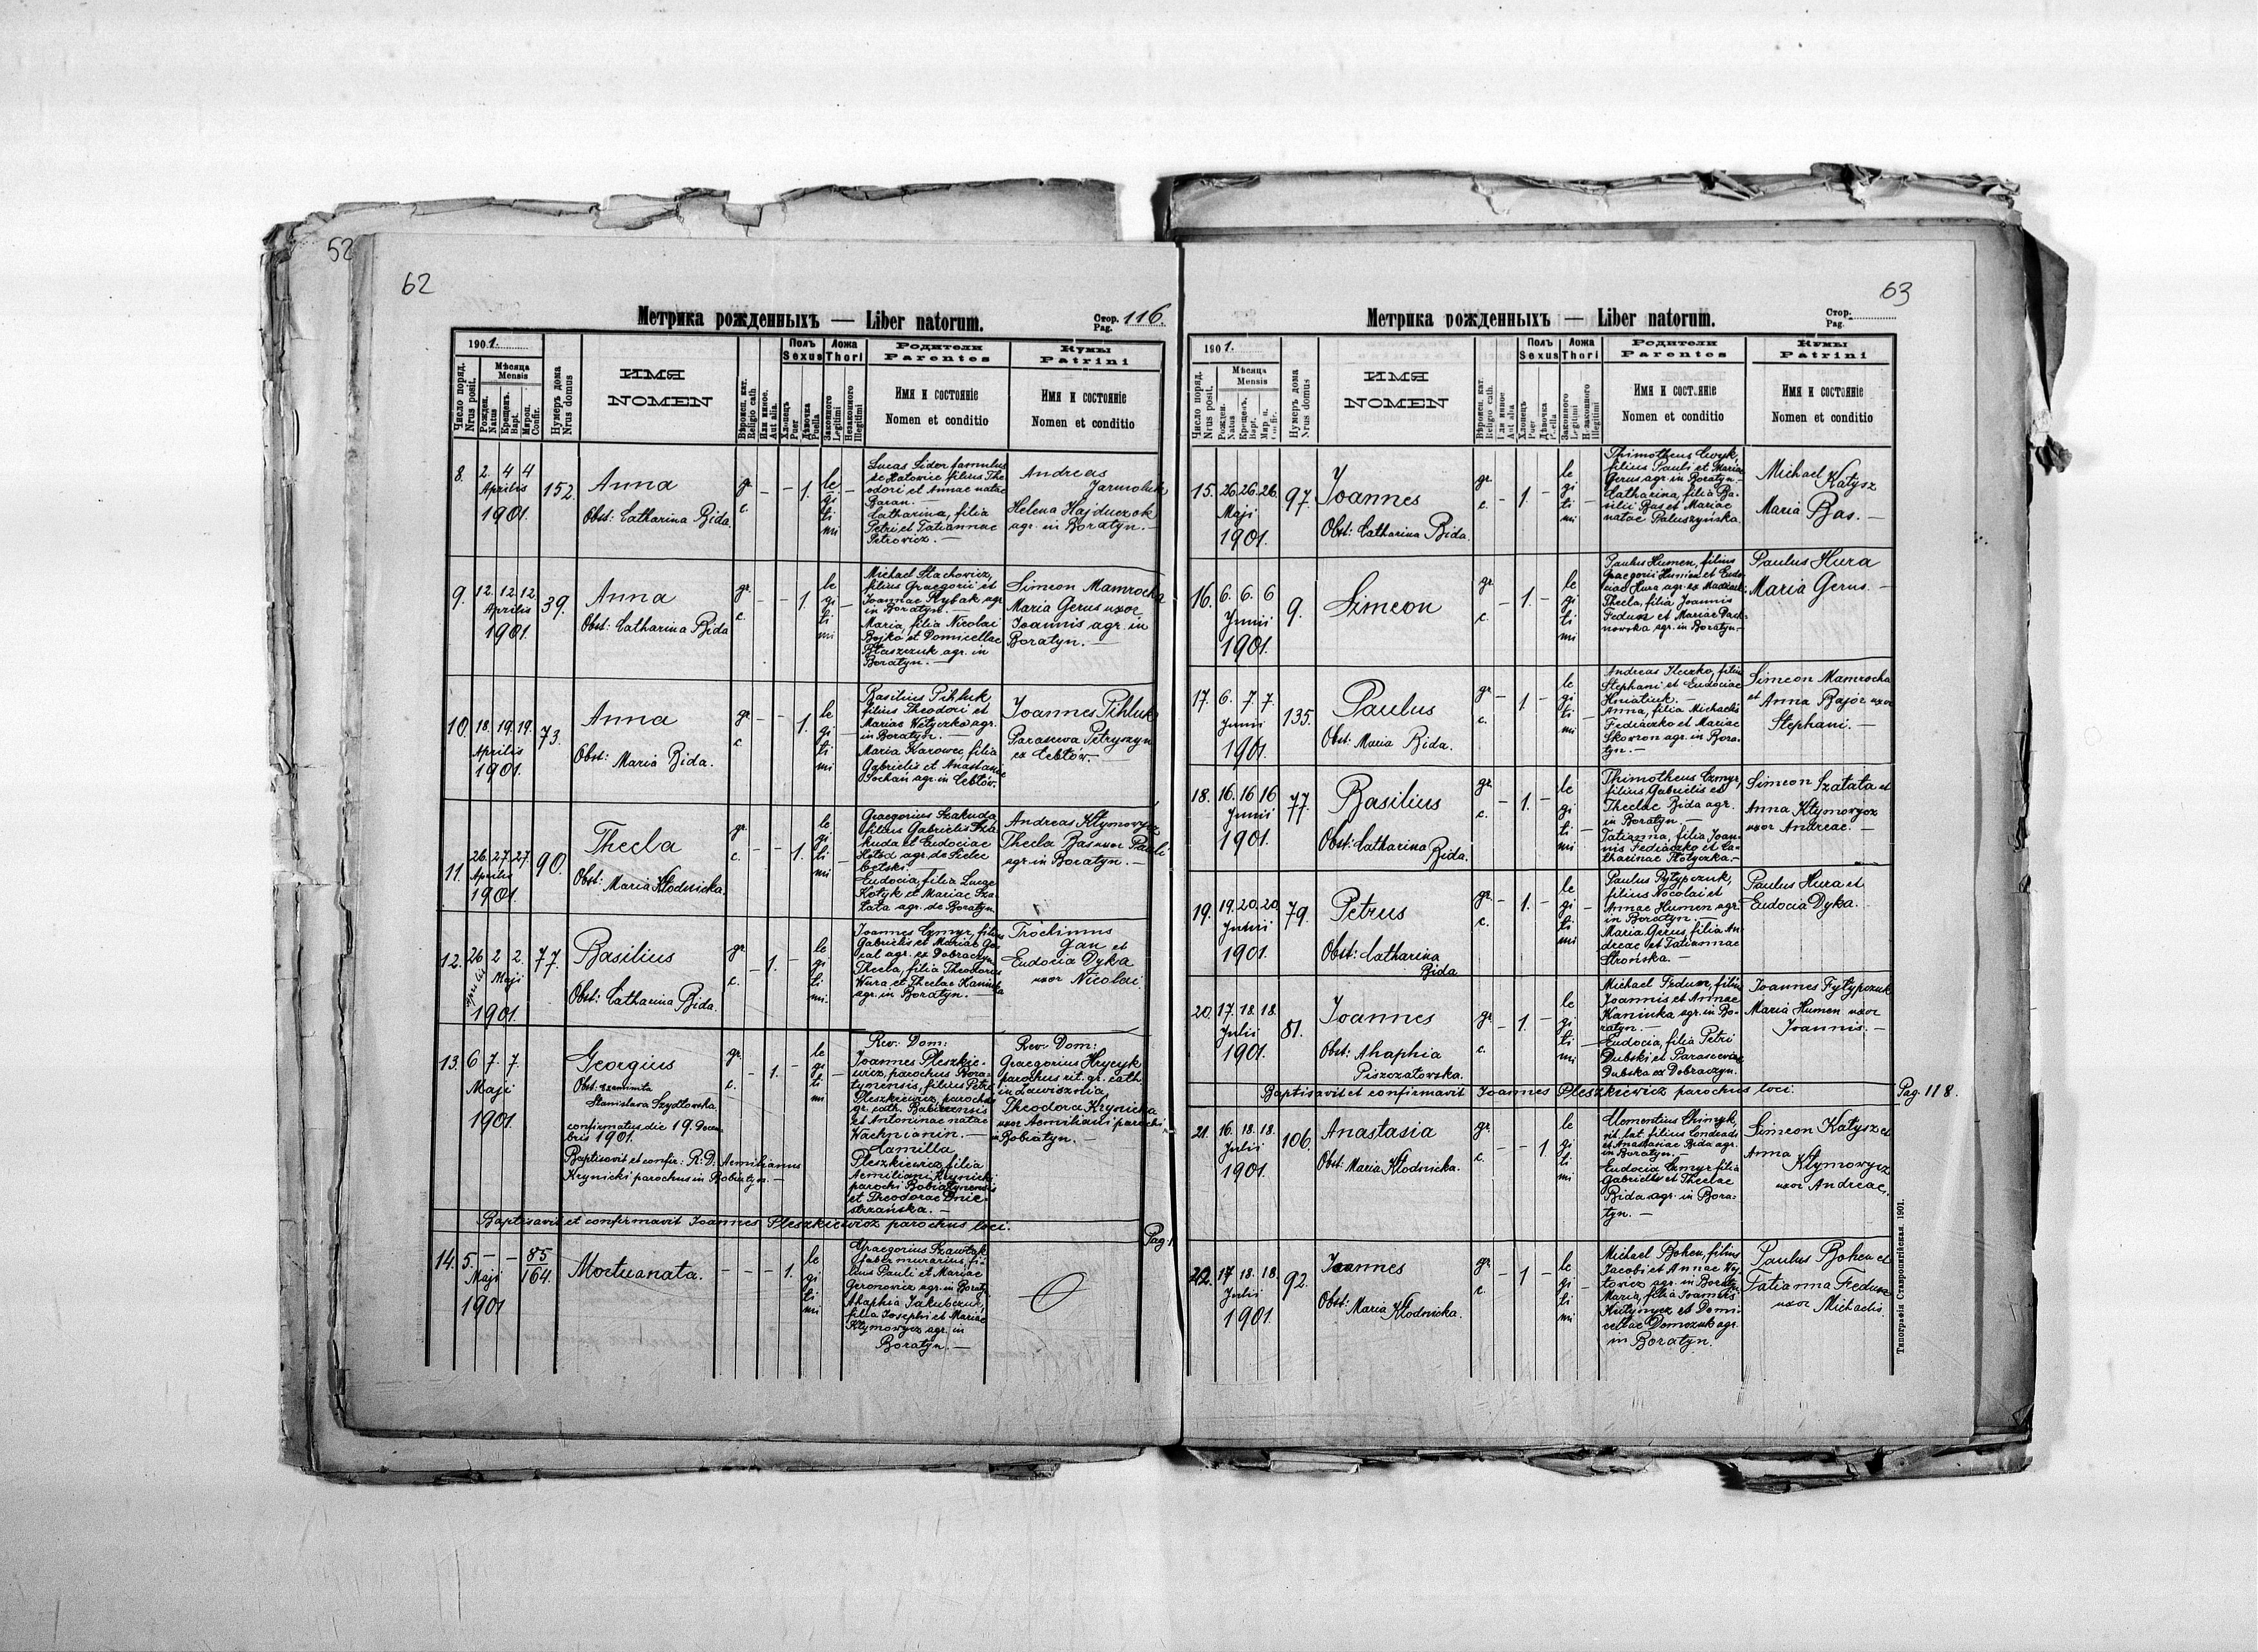 52
62
Метрика рожденныхъ — Liber natorum.
Стор. Pag. 116.
1901.
Число поряд. Nrus posit.
Мѣсяца Mensis
Рожден. Natus
Крещен. Bapt.
Миров. Confir.
Нумеръ дома Nrus domus
ИМЯ
NOMEN
Вѣроисп. кат. Religio cath
Или иное. Aut alia.
Полъ Sexus
Хлопецъ Puer
Дѣвочка Puella
Ложа Thori
Законного Legitimi
Незаконного Illegitimi
Родители
Parentes
Имя и состоянiе
Nomen et conditio
Кумы
Patrini
Имя и состоянiе
Nomen et conditio
8. 2. 4 4 Aprilis 1901. 152.
Anna
Obst: Catharina Bida.
gr. c. – – 1. legitimi –
Lucas Sider famulus
de Hatowice filius The
odori et Annae natae
Baran.
Catharina, filia
Petri et Tatiannae
Petrowicz. —
Andreas
Jarmoluk
Helena Hajduczok
agr. in Boratyn. —
9. 12. 12. 12. Aprilis 1901. 39.
Anna
Obst: Catharina Bida
gr. c. – – 1. legitimi –
Michael Stachowicz,
filius Graegorii et
Joannae Rybak agr
in Boratyn. —
Maria, filia Nicolai
Bojko et Domicellae
Błaszczuk agr. in
Boratyn. —
Simeon Mamrocha
Maria Gerus uxor
Joannis agr. in
Boratyn. —
10. 18. 19. 19. Aprilis 1901. 73.
Anna
Obst: Maria Bida.
gr. c. – – 1. legitimi –
Basilius Pihluk
filius Theodori et
Mariae Wityczka agr.
in Boratyn. —
Maria Karowec, filia
Gabrielis et Anastasiae
Sochan agr. in Cebłów.
Joannes Pihluk
Parascewa Petryszyn
ex Cebłów. —
11. 26. 27. 27. Aprilis 1901. 90.
Thecla
Obst: Maria Kłodnicka.
gr. c. – – 1. legitimi –
Graegorius Szakuda
filius Gabrielis Sza
kuda et Eudociae
Hołod agr. de Sielec
bełski.
Eudocia, filia Lucae
Kotyk et Mariae Sza
łata agr. de Boratyn
Andreas Kłymowycz
Thecla Bas uxor Pauli
agr. in Boratyn. —
12. 26 Aprilis 2 2. Maji 1901. 77.
Basilius
Obst: Catharina Bida.
gr. c. – 1. – legitimi
Joannes Czmyr, filius
Gabrielis et Mariae
agr. ex Dobraczyn
Thecla, filia Theodorus
Wura et Theclae Kaninka
agr. in Boratyn. —
Trochimus
Gan et
Eudocia Dyka
uxor Nicolai.
13. 6 7. 7. Maji 1901.
Georgius
Obst: examinita
Stanislava Szydłowska.
confirmatus die 19. Decem
bris 1901.
Baptisavit et confir: R: D: Aemilianus
Krynicki parochus in Bobiatyn. —
gr. c. – 1. – legitimi –
Rev: Dom:
Joannes Pleszkie-
wicz, parochus Bora-
tynensis, filius Petri
Pleszkiewicz parochus
gr. cath. Babicensis
et Antoninae natae
Wachnianin. —
Camilla
Pleszkiewicz filia
Aemiliani Krynicki
parochi Bobiatynensis
et Theodorae Dnie-
strzańska. —
Rev: Dom:
Graegorius Hrycyk
parochus rit. gr. cath.
in Ławiszonia
Theodora Krynicka
uxor Aemiliani parochi
in Bobiatyn. —
Baptisavit et confirmavit Joannes Pleszkiewicz parochus loci.
Pag.
14. 5. – – Maji 1901 85/164.
Mortuanata.
– – – 1. legitimi
Graegorius Szawłak
faber murarius, fi-
lius Pauli et Mariae
Gironowicz agr. in Boratyn
Ahaphia Jakubczuk,
filia Josephi et Mariae
Kłymowycz agr. in
Boratyn. —
63
Метрика рожденныхъ — Liber natorum.
Стор. Pag.
1901.
Число поряд. Nrus posit.
Мѣсяца Mensis
Рожден. Natus
Крещенъ. Bapt.
Мир. п. Confir.
Нумеръ дома Nrus domus
ИМЯ
NOMEN
Вѣроисп. кат. Religio cath.
Или иное Aut alia
Полъ Sexus
Хлопецъ Puer
Дѣвочка Puella
Ложа Thori
Законного Legitimi
Незаконного Illegitimi
Родители
Parentes
Имя и состоянiе
Nomen et conditio
Кумы
Patrini
Имя и состоянiе
Nomen et conditio
15. 26. 26. 26. Maji 1901. 97.
Joannes
Obst: Catharina Bida.
gr. c. – 1. – legitimi –
Thimotheus Cwyk,
filius Pauli et Mariae
Gerus agr. in Boratyn. —
Catharina, filia Ba-
silii Bas et Mariae
natae Paluszyńska.
Michael Katysz
Maria Bas. —
16. 6. 6. 6 Junii 1901. 9.
Simeon
gr. c. – 1. – legitimi –
Paulus Humen, filius
Graegorii Humen et Eudo
ciae Hura agr. ex
Thecla, filia Joannis
Fedun et Mariae Pach-
nowska agr. in Boratyn. —
Paulus Hura
Maria Gerus. —
17. 6 7. 7. Junii 1901. 135.
Paulus
Obst: Maria Bida.
gr. c. – 1 – legitimi –
Andreas Ileczko, filius
Stephani et Eudociae
Hnatiuk. —
Anna, filia Michaelis
Fediaczko et Mariae
Skowron agr. in Bora-
tyn. —
Simeon Mamrocha
et Anna Bajor uxor
Stephani. —
18. 16. 16 16 Junii 1901. 77.
Basilius
Obst: Catharina Bida.
gr. c. – 1. – legitimi –
Thimotheus Czmyr,
filius Gabrielis et
Theclae Bida agr.
in Boratyn. —
Tatianna, filia Joan-
nis Fediaczko et Ca-
tharinae Płotyczka. —
Simeon Szałata et
Anna Kłymowycz
uxor Andreae. —
19. 19. 20. 20. Junii 1901. 79.
Petrus
Obst: Catharina Bida
gr. c. – 1. – legitimi –
Paulus Pyłypczuk,
filius Nocolai et
Annae Humen agr.
in Boratyn. —
Maria Gerus, filia An
dreae et Tatiannae
Strońska. —
Paulus Hura et
Eudocia Dyka.
20. 17. 18. 18. Julii 1901. 81.
Joannes
Obst: Ahaphia
Piszczatowska.
gr. c. – 1. – legitimi –
Michael Fedun, filius
Joannis et Annae
Kaninka agr. in Bo-
ratyn. —
Eudocia, filia Petri
Dubski et Parascewiae
Dubska ex Dobraczyn.
Joannes Pyłypczuk
Maria Humen uxor
Joannis. —
Baptisavit et confirmavit Joannes Pleszkiewicz parochus loci.
Pag. 118.
21. 16. 18. 18. Julii 1901. 106.
Anastasia
Obst: Maria Kłodnicka.
gr. c. – – 1 legitimi –
Clementius Chimyk,
rit. lat. filius Condradi
et Anastasiae Bida agr.
in Boratyn. —
Eudocia Czmyr filia
Gabrielis et Theclae
Bida agr. in Bora-
tyn. —
Simeon Katysz et
Anna
Kłymowycz
uxor Andreae.
22. 17 18. 18. Julii 1901. 92.
Joannes
Obst: Maria Kłodnicka.
gr. c. – 1 – legitimi –
Michael Bohen, filius
Jacobi et Annae Wy-
towicz agr. in Boratyn
Maria, filia Joannis
et Domi-
cellae Domczuk agr.
in Boratyn.
Paulus Bohen et
Tatianna Fedun
uxor Michaelis.
Типографія Ставропигійская. 1901.